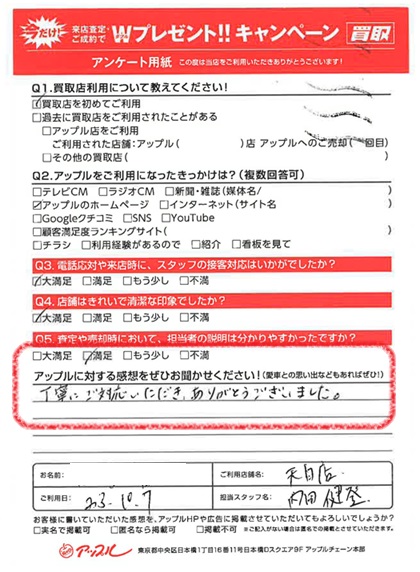 だけ 来店査定・
ご成約で Wプレゼント!!キャンペーン 買取
アンケート用紙 この度は当店をご利用いただきありがとうございます!
Q1.買取店利用について教えてください!
☑買取店を初めてご利用
□過去に買取店をご利用されたことがある
□アップル店をご利用
ご利用された店舗:アップル( )店 アップルへのご売却( 回目)
□その他の買取店( )
Q2.アップルをご利用になったきっかけは?(複数回答可)
□テレビCM □ラジオCM □新聞・雑誌(媒体名/ )
☑アップルのホームページ □インターネット(サイト名 )
□Googleクチコミ □SNS □YouTube
□顧客満足度ランキングサイト( )
□チラシ □利用経験があるので □紹介 □看板を見て
Q3.電話応対や来店時に、スタッフの接客対応はいかがでしたか?
☑大満足 □満足 □もう少し □不満
Q4.店舗はきれいで清潔な印象でしたか?
☑大満足 □満足 □もう少し □不満
Q5.査定や売却時において、担当者の説明は分かりやすかったですか?
□大満足 ☑満足 □もう少し □不満
アップルに対する感想をぜひお聞かせください!(愛車との思い出などもあればぜひ!)
丁寧にご対応いただき、ありがとうございました。
お名前: ご利用店舗名: 天白店
ご利用日: 2023.10.7 担当スタッフ名: 内田健登
お客様に書いていただいた感想を、アップルHPや広告に掲載させていただいてもよろしいでしょうか?
□実名で掲載可 □匿名なら掲載可 □掲載不可 ※ご記入がない場合は匿名での掲載とさせていただきます。
アップル 東京都中央区日本橋1丁目16番11号日本橋Dスクエア9F アップルチェーン本部